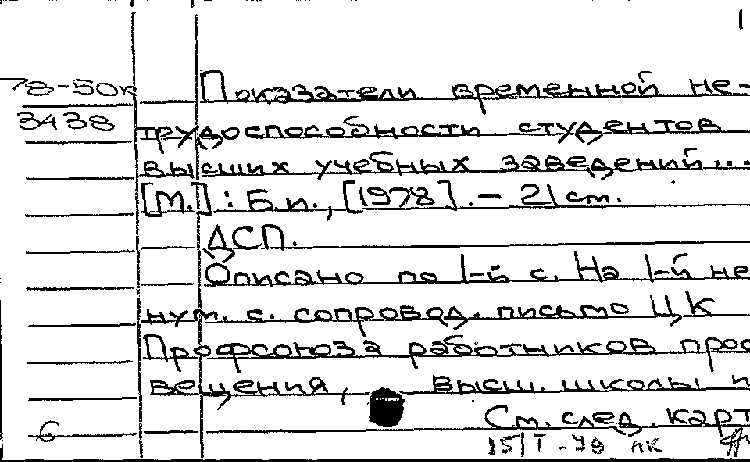 78-50к Показатели временной не-
3438 трудоспособности студентов
высших учебных заведений...
[М.] : Б.и., [1978]. – 21 ст.
ДСП.
Описано по 1-й с. На 1-й не
нум. с. сопровод. письмо ЦК
Профсоюза работников прос
вещения, высш. школы и
6 См. след. карт